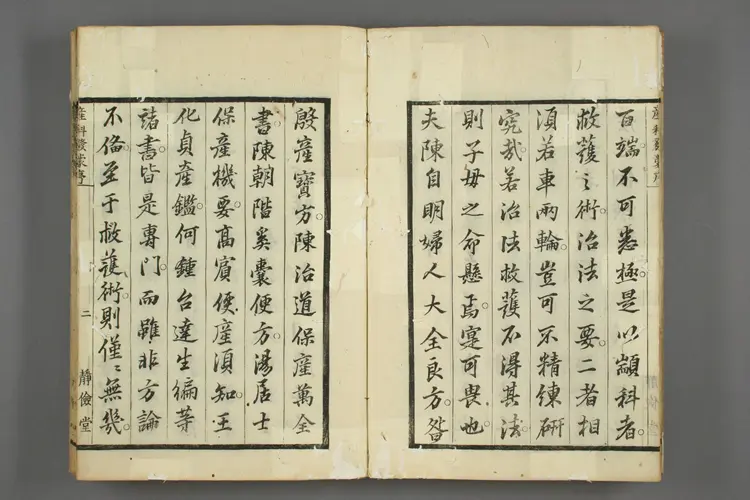 百端不可悉極是以顓科者
救護之術治法之要二者相
須若車兩輪豈可不精練研
究哉若治法救護不得其法
則子母之命懸焉寔可畏也
夫陳自明婦人大全良方昝
殷產寶方陳治道保產萬全
書陳朝階奚囊便方湯居士
保產機要高賓便產須知王
化貞產鑑何鍾台達生編等
諸書皆是專門而雖非方論
不備至于救護術則僅僅無幾
二
靜儉堂